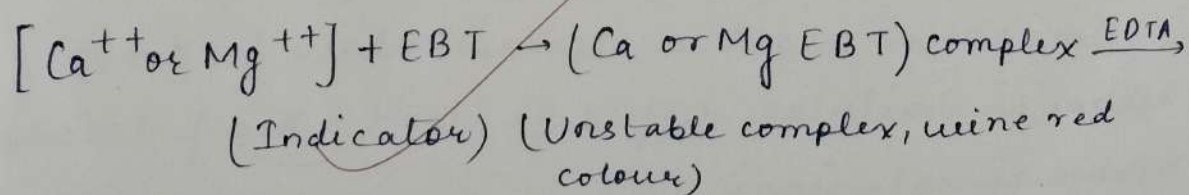 [Ca⁺⁺or Mg⁺⁺] + EBT → (Ca or Mg EBT) complex EDTA→
(Indicator) (Unstable complex, wine red
colour)